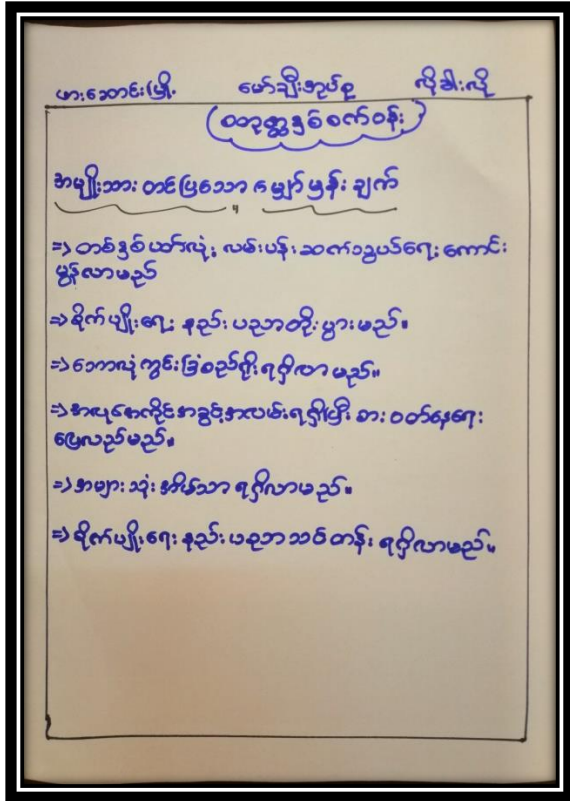 ဖားဆောင်းမြို့ မော်ချီးအုပ်စု လိုခါးလို
စတုတ္ထနှစ်စက်ဝန်း
အမျိုးသား တင်ပြသော မျှော်မှန်းချက်
=> တစ်နှစ်ပတ်လုံး လမ်းပန်းဆက်သွယ်ရေး ကောင်း
မွန်လာမည်
=> စိုက်ပျိုးရေး နည်းပညာတိုးပွားမည်။
=> ဘောလုံကွင်းခြံစည်ရိုးရရှိလာမည်။
=> အလုပ်အကိုင်အခွင့်အလမ်းရရှိပြီး စားဝတ်နေရေး
ပြေလည်မည်။
=> အများသုံးအိမ်သာ ရရှိလာမည်။
=> စိုက်ပျိုးရေး နည်းပညာသင်တန်း ရရှိလာမည်။